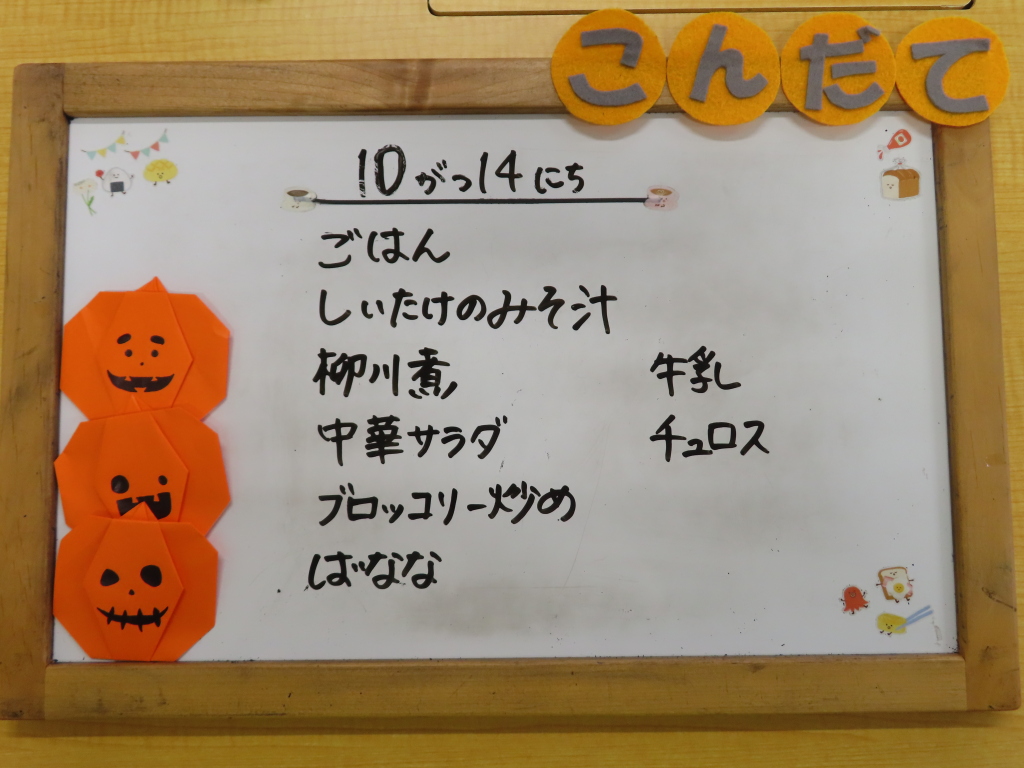 こんだて
10がつ14にち
ごはん
しいたけのみそ汁
柳川煮
中華サラダ
ブロッコリー炒め
ばなな
牛乳
チュロス